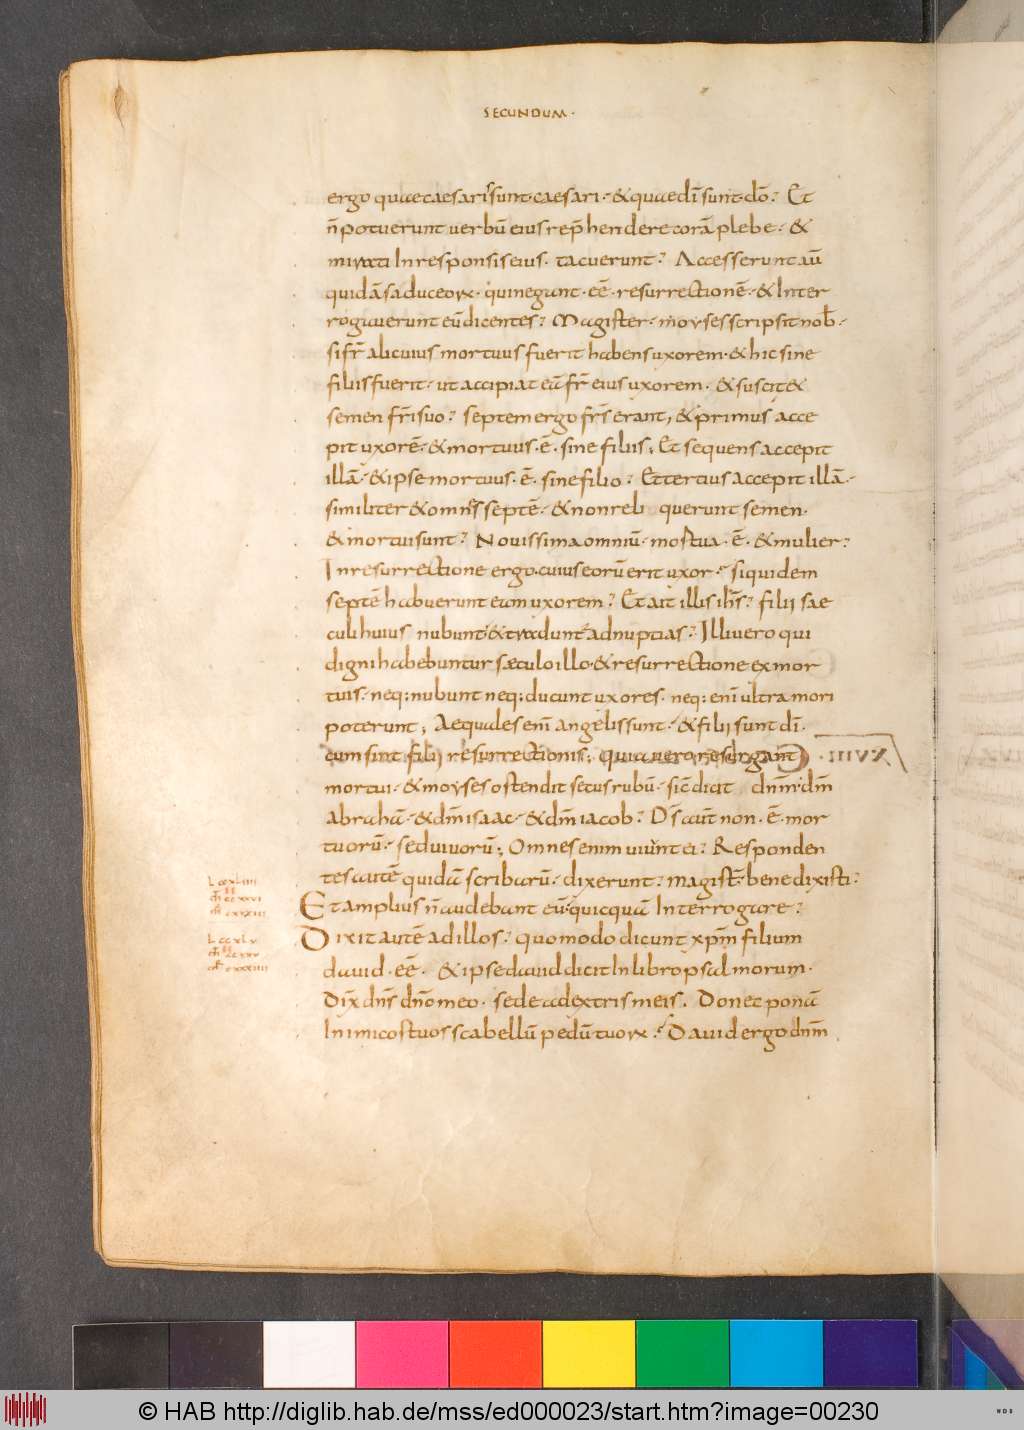 SECUNDUM·
ergo quae caesaris sunt· caesari·· & quae dī sunt· dō? Et
n̄ potuerunt uerbū eius rep̄hendere corā plebe·· &
mirati In responsis eius· tacuerunt? Accesserunt aū
quidā saduceoꝝ· qui negant· eē· resurrectionē·· & Inter
rogauerunt eū dicentes? Magister·· moyses scripsit nob̄··
si fr̄ alicuius mortuus fuerit habens uxorem· & hic sine
filiis fuerit·· ut accipiat eā fr̄ eius uxorem· & suscit&
semen fr̄i suo? septem ergo fr̄s erant; & primus acce
pit uxorē·· & mortuus· ē· sine filiis; Et sequens accepit
illā·· & ipse mortuus· ē· sine filio? Et tertius accepit illā··
similiter & omn̄s septē·· & non reli querunt semen·
& mortui sunt? Nouissima omniū· mortua· ē· & mulier?
In resurrectione ergo· cuius eorū erit uxor·· siquidem
septē habuerunt eam uxorem? Et ait illis ih̄s? filii sae
culi huius nubunt & tradunt ad nuptias? Illi uero qui
digni habebuntur sæculo illo· & resurrectione ex mor
tuis· neq; nubunt neq; ducunt uxores· neq; enī ultra mori
poterunt; Aequales enī angelis sunt·· & filii sunt dī·
cum sint filii resurrectionis; quia uero resurgant XVIII·
mortui·· & moyses ostendit secus rubū·· sic̄ dicit dn̄m· dm̄
abrahā·· & dm̄ isaac·· & dm̄ iacob? D̄s aūt non· ē· mor
tuorū·· sed uiuorū; Omnes enim uiuunt ei? Responden
tes autē quidā scribarū·· dixerunt? magist̄·· bene dixisti?
Et amplius n̄ audebant eū· quicquā Interrogare?
Dixit autē ad illos? quomodo dicunt xp̄m filium
dauid· eē· & ipse dauid dicit In libro psalmorum·
Dix̄ dn̄s dn̄o meo· sede a dextris meis· Donec ponā
Inimicos tuos scabellū pedū tuoꝝ? Dauid ergo dn̄m
© HAB http://diglib.hab.de/mss/ed000023/start.htm?image=00230